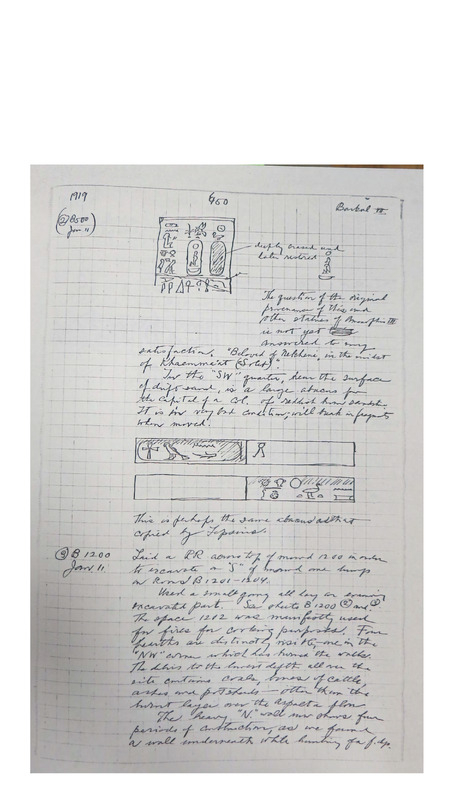 1919
460
Barkal III
② B500
Jan 11
deeply erased and
later restored
The question of the original
provenance of this and
other statues of Amenophis III
is not yet
answered to my
satisfaction. "Beloved of Nekheny, in the midst
of Khaemmaat (Soleb)".
In the "SW" quarter, near the surface
of drift sand, is a large abacus from
the capital of a col. of reddish
It is in very bad condition, will break in fragments
when moved.
This is perhaps the same abacus as that
copied by Lepsius.
③ B 1200
Jan. 11.
Laid a RR across top of mound 1200 in order
to excavate a "S" of mound one
on Rooms B 1201-1204.
Used a small gang all day on
excavated part. See photo B1200 ② and ③.
The space 1212 was manifestly used
for fires for cooking purposes. Four
hearths are distinctly visible, one in the
"NW" corner which has burned the walls.
The debris to the lowest depth all over the
site contains coals, bones of cattle,
ashes and potsherds — often then the
burnt layer over the floor
The heavy "N" wall now shows four
periods of construction, as we found
a wall underneath while hunting for f. dep.